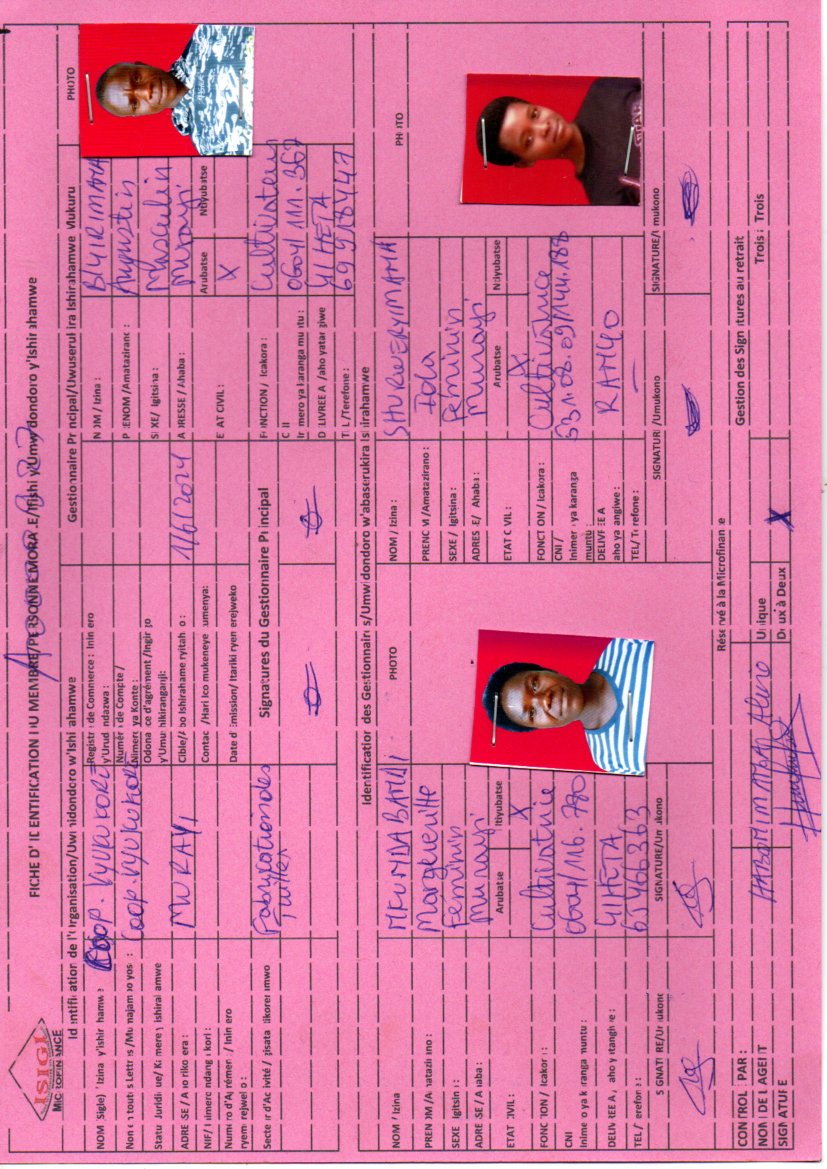 ISIGI
MICROFINANCE
FICHE D'IDENTIFICATION DU MEMBRE/PERSONNE MORALE/Ifishi y'Umwidondoro y'Ishirahamwe
Identification de l'Organisation/Uwmidondoro w'Ishirahamwe
NOM (Sigle) / Izina y'ishirahamwe Coop. VYUKUKORE
Nom en toutes Lettres /Mu majambo yose : Coop. VYUKUKORE
Statut Juridique/ Kamere y'ishirahamwe
ADRESSE / Aho riko era : MURAYI
NIF/ Numero ndangakori :
Numéro d'Agrément / Inimero
ryemerejweko :
Secteur d'Activité / gisata dikoreramwo Fabrication des Tuilles
Registre de Commerce : Inimero
y'Urudandazwa :
Numéro de Compte /
Nimero ya Konte :
Odonance d'agrément /Ingingo
y'Umushikiranganji:
Cible/Abo Ishirahamwe ryitaho : 1/6/2024
Contact /Hari ico mukeneye kumenya:
Date d'Emission/ Itariki ryemerejweko
Signatures du Gestionnaire Principal
Gestionnaire Principal/Uwuserukira Ishirahamwe Mukuru
PHOTO
NOM / Izina : BIYIRIMANA
PRENOM /Amatazirano : Augustin
SEXE/ Igitsina : Masculin
ADRESSE / Ahaba : Murayi
ETAT CIVIL : Arubatse X Ntiyubatse
FONCTION / Icakora : Cultivateur
CNI
Inimero ya karanga muntu : 0604/111.367
DELIVREE A /aho yatangiwe GIHETA
TEL /Terefone : 69918447
Identification des Gestionnaires/Umwidondoro w'abaserukira Ishirahamwe
NOM / Izina MFUMBABATUI
PRENOM /Amatazirano : Marguerite
SEXE / Igitsina : Féminin
ADRESSE / Ahaba : Murayi
ETAT CIVIL : Arubatse Ntiyubatse X
FONCTION / Icakora : Cultivatrice
CNI
Inimero ya karanga muntu : 0604/116.780
DELIVREE A / aho yatangiwe : GIHETA
TEL / Terefone : 65466363
SIGNATURE/Umukono SIGNATURE/Umukono
PHOTO
NOM / Izina : SHURWERYIMANA
PRENOM /Amatazirano : Ida
SEXE / Igitsina : Féminin
ADRESSE / Ahaba : Murayi
ETAT CIVIL : Arubatse X Ntiyubatse
FONCTION / Icakora : Cultivatrice
CNI /
Inimero ya karanga
muntu : 531.08.09/144.188
DELIVREE A
aho yatangiwe : RANGO
TEL/ Terefone : —
SIGNATURE /Umukono SIGNATURE/Umukono
PHOTO
Réservé à la Microfinance
CONTROLE PAR :
NOM DE L'AGENT HABONIMANA Aline
SIGNATURE
Gestion des Signatures au retrait
Unique
Deux à Deux X
Trois à Trois